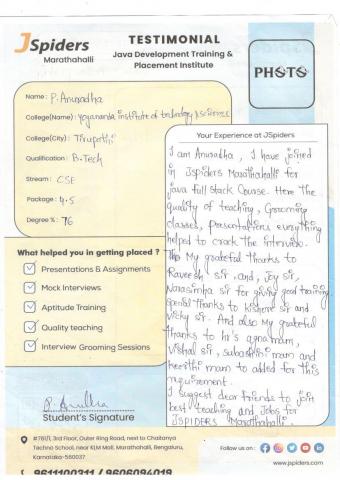 JSpiders
Marathahalli
TESTIMONIAL
Java Development Training &
Placement Institute
PHOTO
Name: P. Anuradha
College(Name): Yogananda institute of technology & science
College(City): Tirupathi
Qualification: B.Tech
Stream: CSE
Package: 4.5
Degree %: 76
What helped you in getting placed ?
Presentations & Assignments
Mock Interviews
Aptitude Training
Quality teaching
Interview Grooming Sessions
Student's Signature
Your Experience at JSpiders
I am Anuradha, I have joined
in Jspiders Marathahalli for
java full stack Course. Here the
quality of teaching, Grooming
classes, presentations everything
helped to crack the interview.
My grateful thanks to
Raveesh sir, and, Joy sir,
Narasimha sir for giving good training
special thanks to kishore sir and
vicky sir. And also My grateful
thanks to hr's
vishal sir, mam and
keerthi mam to added for this
requirement.
I suggest dear friends to join
best teaching and Jobs for
JSPIDERS Marathahalli.
#761/1, 3rd Floor, Outer Ring Road, next to Chaitanya
Techno School, near KLM Mall, Marathahalli, Bengaluru,
Karnataka-560037
9611100311 / 9606094019
Follow us on :
www.jspiders.com